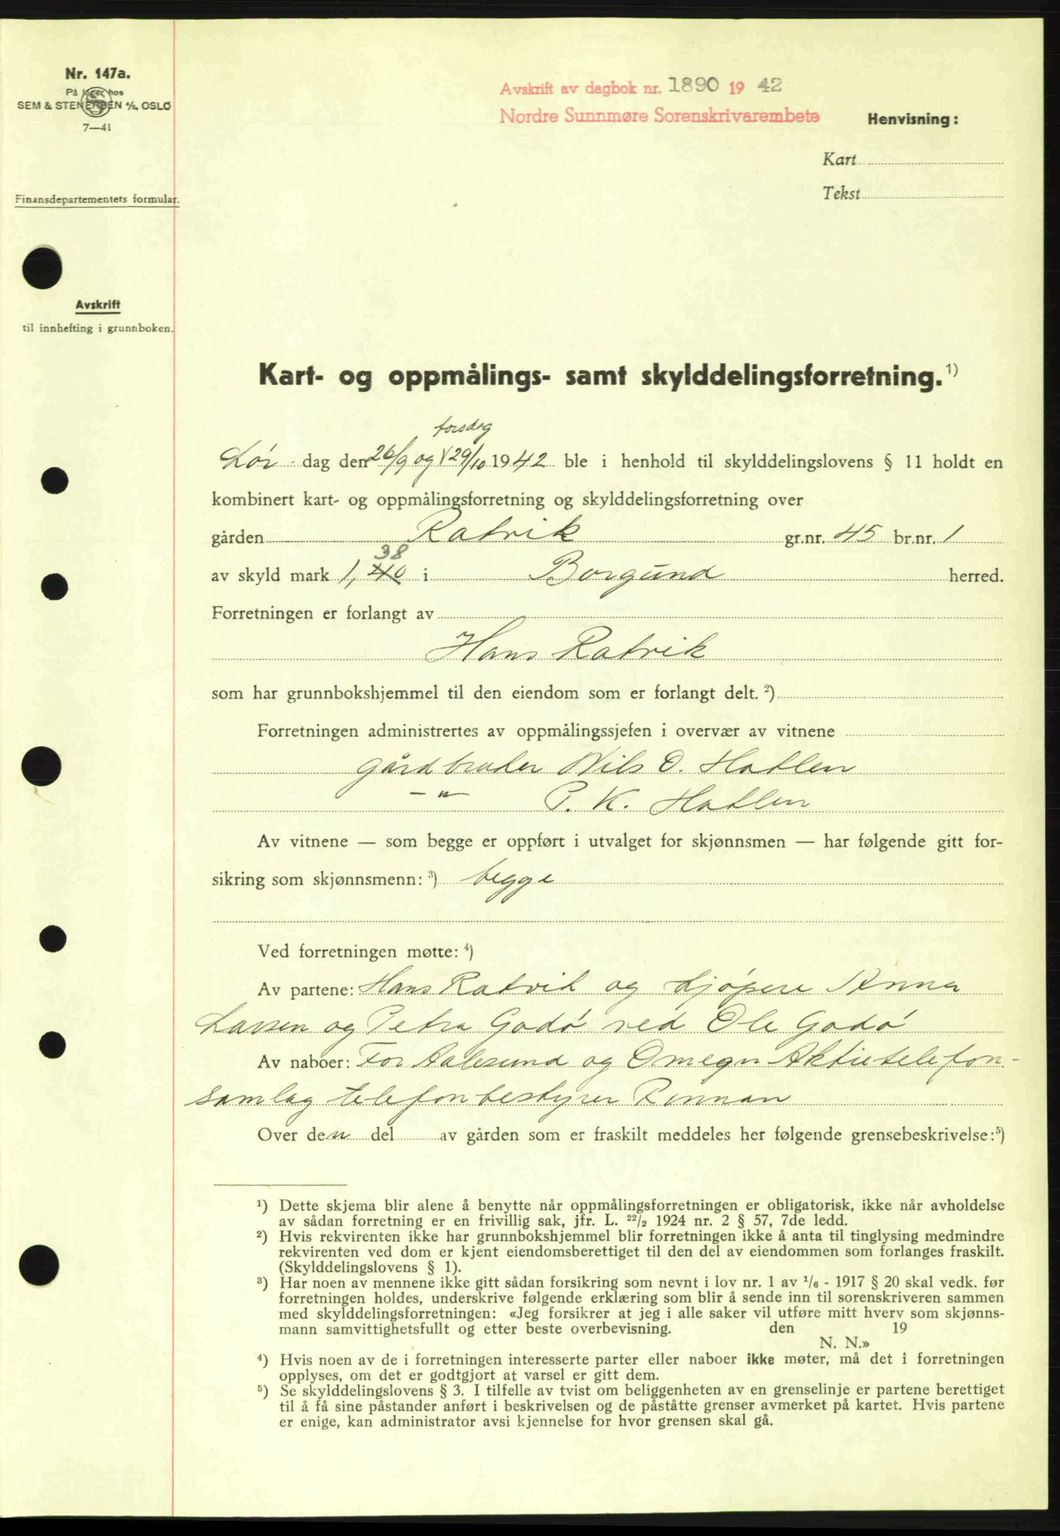 Nr. 147a.
På lager hos
SEM & STENERSEN A/S, OSLO
7—41
Finansdepartementets formular.
Avskrift
til innhefting i grunnboken.
Avskrift av dagbok nr. 1890 19 42
Nordre Sunnmøre Sorenskrivarembete
Henvisning:
Kart
Tekst
Kart- og oppmålings- samt skylddelingsforretning.¹)
torsdag
Lør dag den 26/9 og 29/10 1942 ble i henhold til skylddelingslovens § 11 holdt en
kombinert kart- og oppmålingsforretning og skylddelingsforretning over
gården Ratvik gr.nr. 45 br.nr. 1
38
av skyld mark 1,40 i Borgund herred.
Forretningen er forlangt av
Hans Ratvik
som har grunnbokshjemmel til den eiendom som er forlangt delt. ²)
Forretningen administrertes av oppmålingssjefen i overvær av vitnene
gårdbruker Nils O. Hatlen
— " — P. K. Hatlen
Av vitnene — som begge er oppført i utvalget for skjønnsmen — har følgende gitt for-
sikring som skjønnsmenn: ³) begge
Ved forretningen møtte: ⁴)
Av partene: Hans Ratvik og kjøpere Anna
Larsen og Petra Godø ved Ole Godø
Av naboer: For Aalesund og Omegn Aktietelefon-
samlag telefonbestyrer Rennan
Over den del av gården som er fraskilt meddeles her følgende grensebeskrivelse:⁵)
¹) Dette skjema blir alene å benytte når oppmålingsforretningen er obligatorisk, ikke når avholdelse
av sådan forretning er en frivillig sak, jfr. L. ²²/₂ 1924 nr. 2 § 57, 7de ledd.
²) Hvis rekvirenten ikke har grunnbokshjemmel blir forretningen ikke å anta til tinglysing medmindre
rekvirenten ved dom er kjent eiendomsberettiget til den del av eiendommen som forlanges fraskilt.
(Skylddelingslovens § 1).
³) Har noen av mennene ikke gitt sådan forsikring som nevnt i lov nr. 1 av ¹/₆ - 1917 § 20 skal vedk. før
forretningen holdes, underskrive følgende erklæring som blir å sende inn til sorenskriveren sammen
med skylddelingsforretningen: «Jeg forsikrer at jeg i alle saker vil utføre mitt hverv som skjønns-
mann samvittighetsfullt og etter beste overbevisning. den 19
N. N.»
⁴) Hvis noen av de i forretningen interesserte parter eller naboer ikke møter, må det i forretningen
opplyses, om det er godtgjort at varsel er gitt dem.
⁵) Se skylddelingslovens § 3. I tilfelle av tvist om beliggenheten av en grenselinje er partene berettiget
til å få sine påstander anført i beskrivelsen og de påståtte grenser avmerket på kartet. Hvis partene
er enige, kan administrator avsi kjennelse for hvor grensen skal gå.